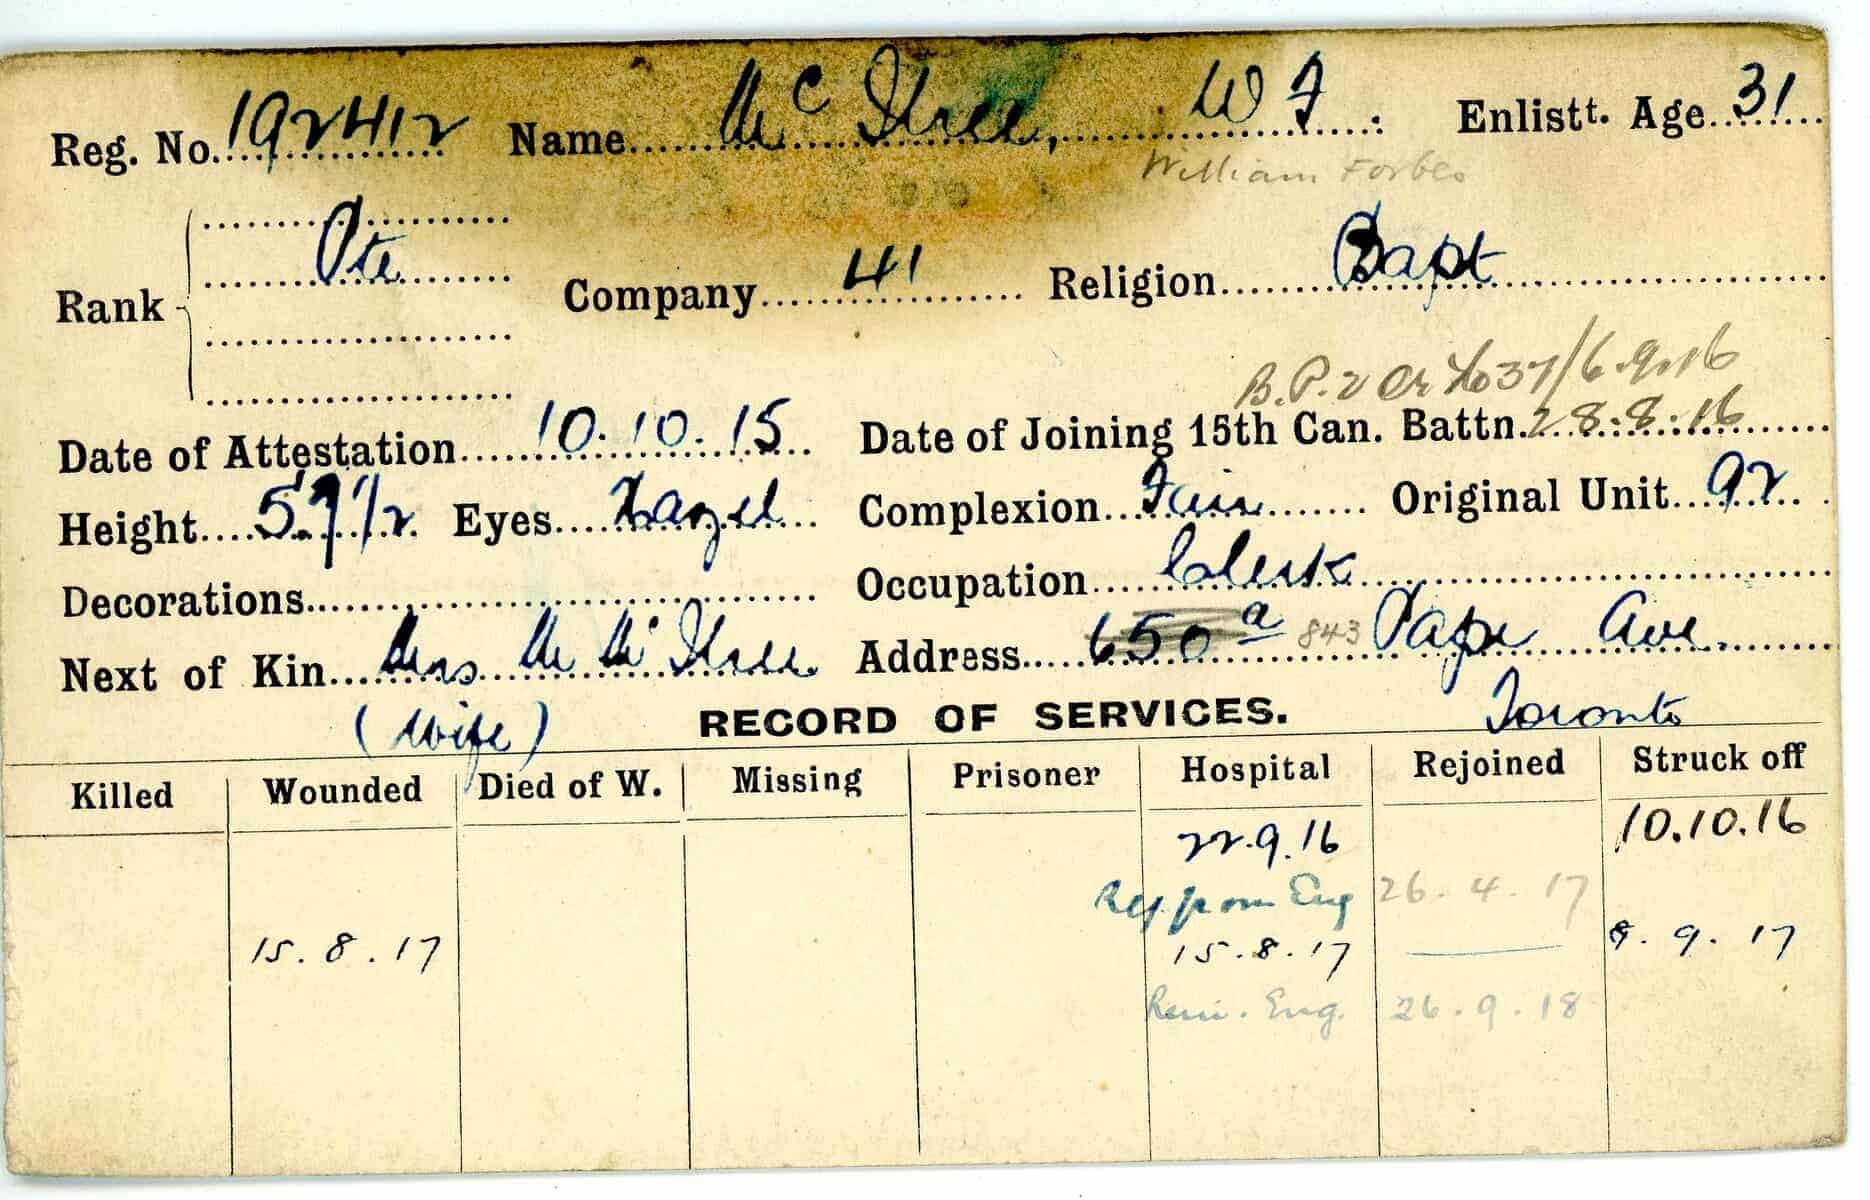 Reg. No. 192412 Name Mc , W F. Enlistt. Age. 31
William Forbes
Rank Pte Company 41 Religion Bapt
B.P. 2 Or 37/6.9.16
Date of Attestation 10.10.15 Date of Joining 15th Can. Battn. 28.8.16
Height 5.9 1/2 Eyes Hazel Complexion Fair Original Unit 92
Decorations Occupation Clerk
Next of Kin Mrs M Mc Address 650a 843 Pape Ave.
(Wife) RECORD OF SERVICES. Toronto
Killed Wounded Died of W. Missing Prisoner Hospital Rejoined Struck off
22.9.16 10.10.16
from Eng 26.4.17
15.8.17 15.8.17 — 9.9.17
Eng. 26.9.18